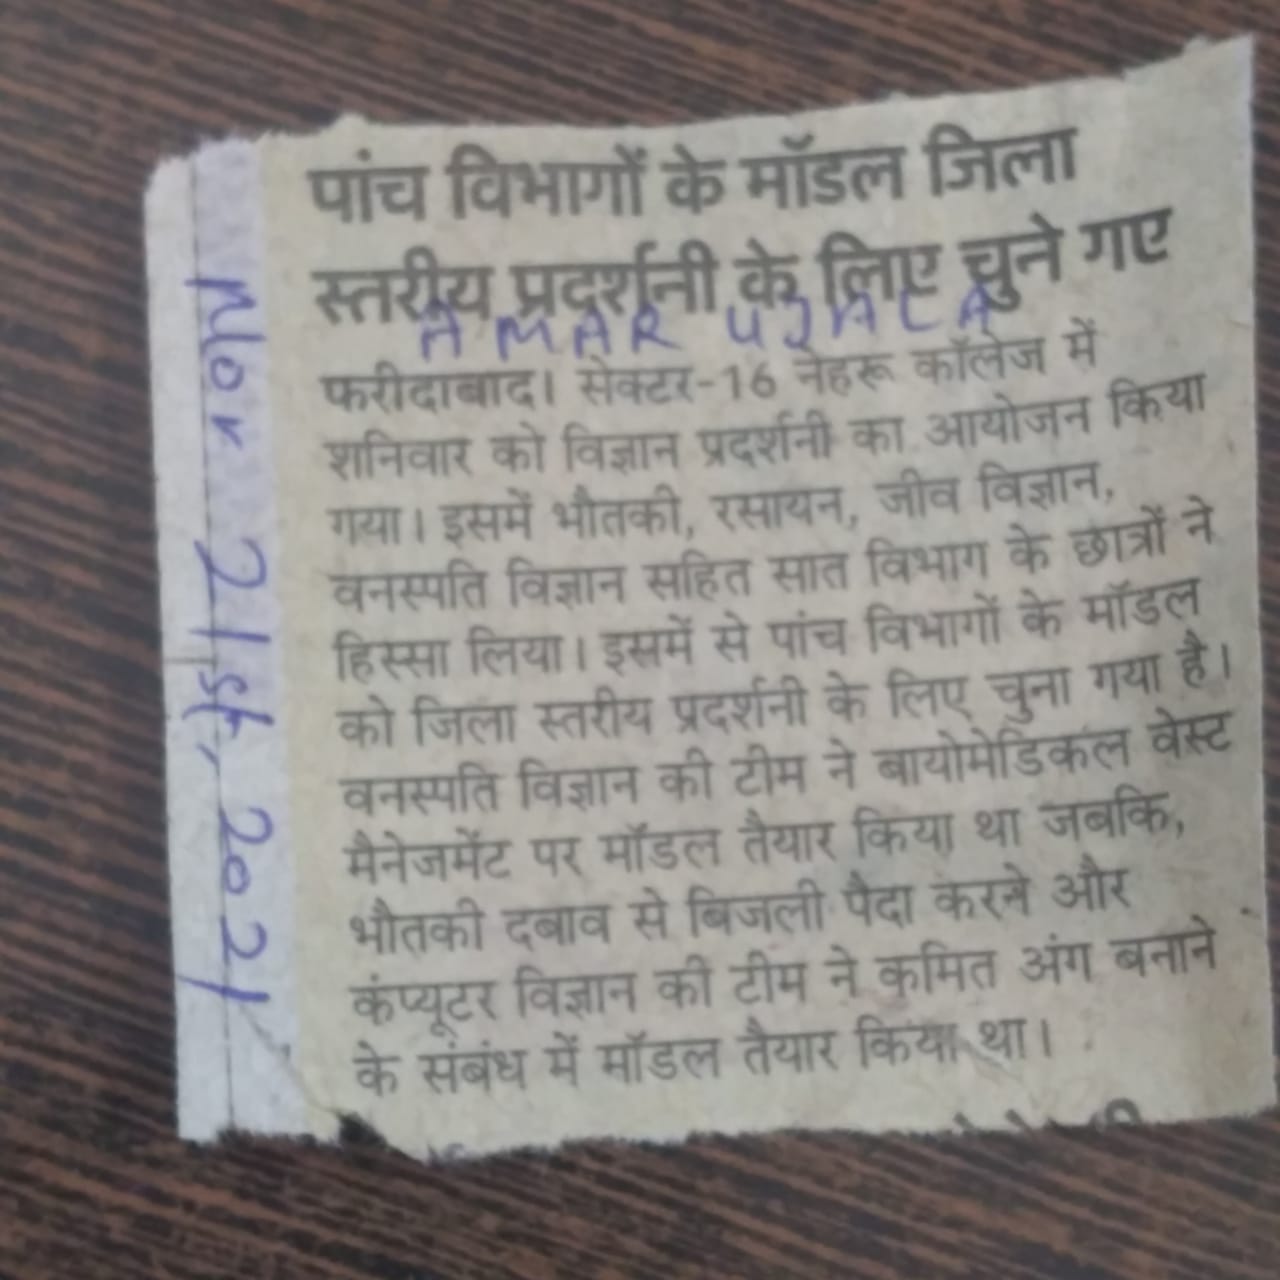 पांच विभागों के मॉडल जिला
स्तरीय प्रदर्शनी के लिए चुने गए
AMAR UJALA
फरीदाबाद। सेक्टर-16 नेहरू कॉलेज में
शनिवार को विज्ञान प्रदर्शनी का आयोजन किया
गया। इसमें भौतकी, रसायन, जीव विज्ञान,
वनस्पति विज्ञान सहित सात विभाग के छात्रों ने
हिस्सा लिया। इसमें से पांच विभागों के मॉडल
को जिला स्तरीय प्रदर्शनी के लिए चुना गया है।
वनस्पति विज्ञान की टीम ने बायोमेडिकल वेस्ट
मैनेजमेंट पर मॉडल तैयार किया था जबकि,
भौतकी दबाव से बिजली पैदा करने और
कंप्यूटर विज्ञान की टीम ने कमित अंग बनाने
के संबंध में मॉडल तैयार किया था।
Nov 21st, 2021